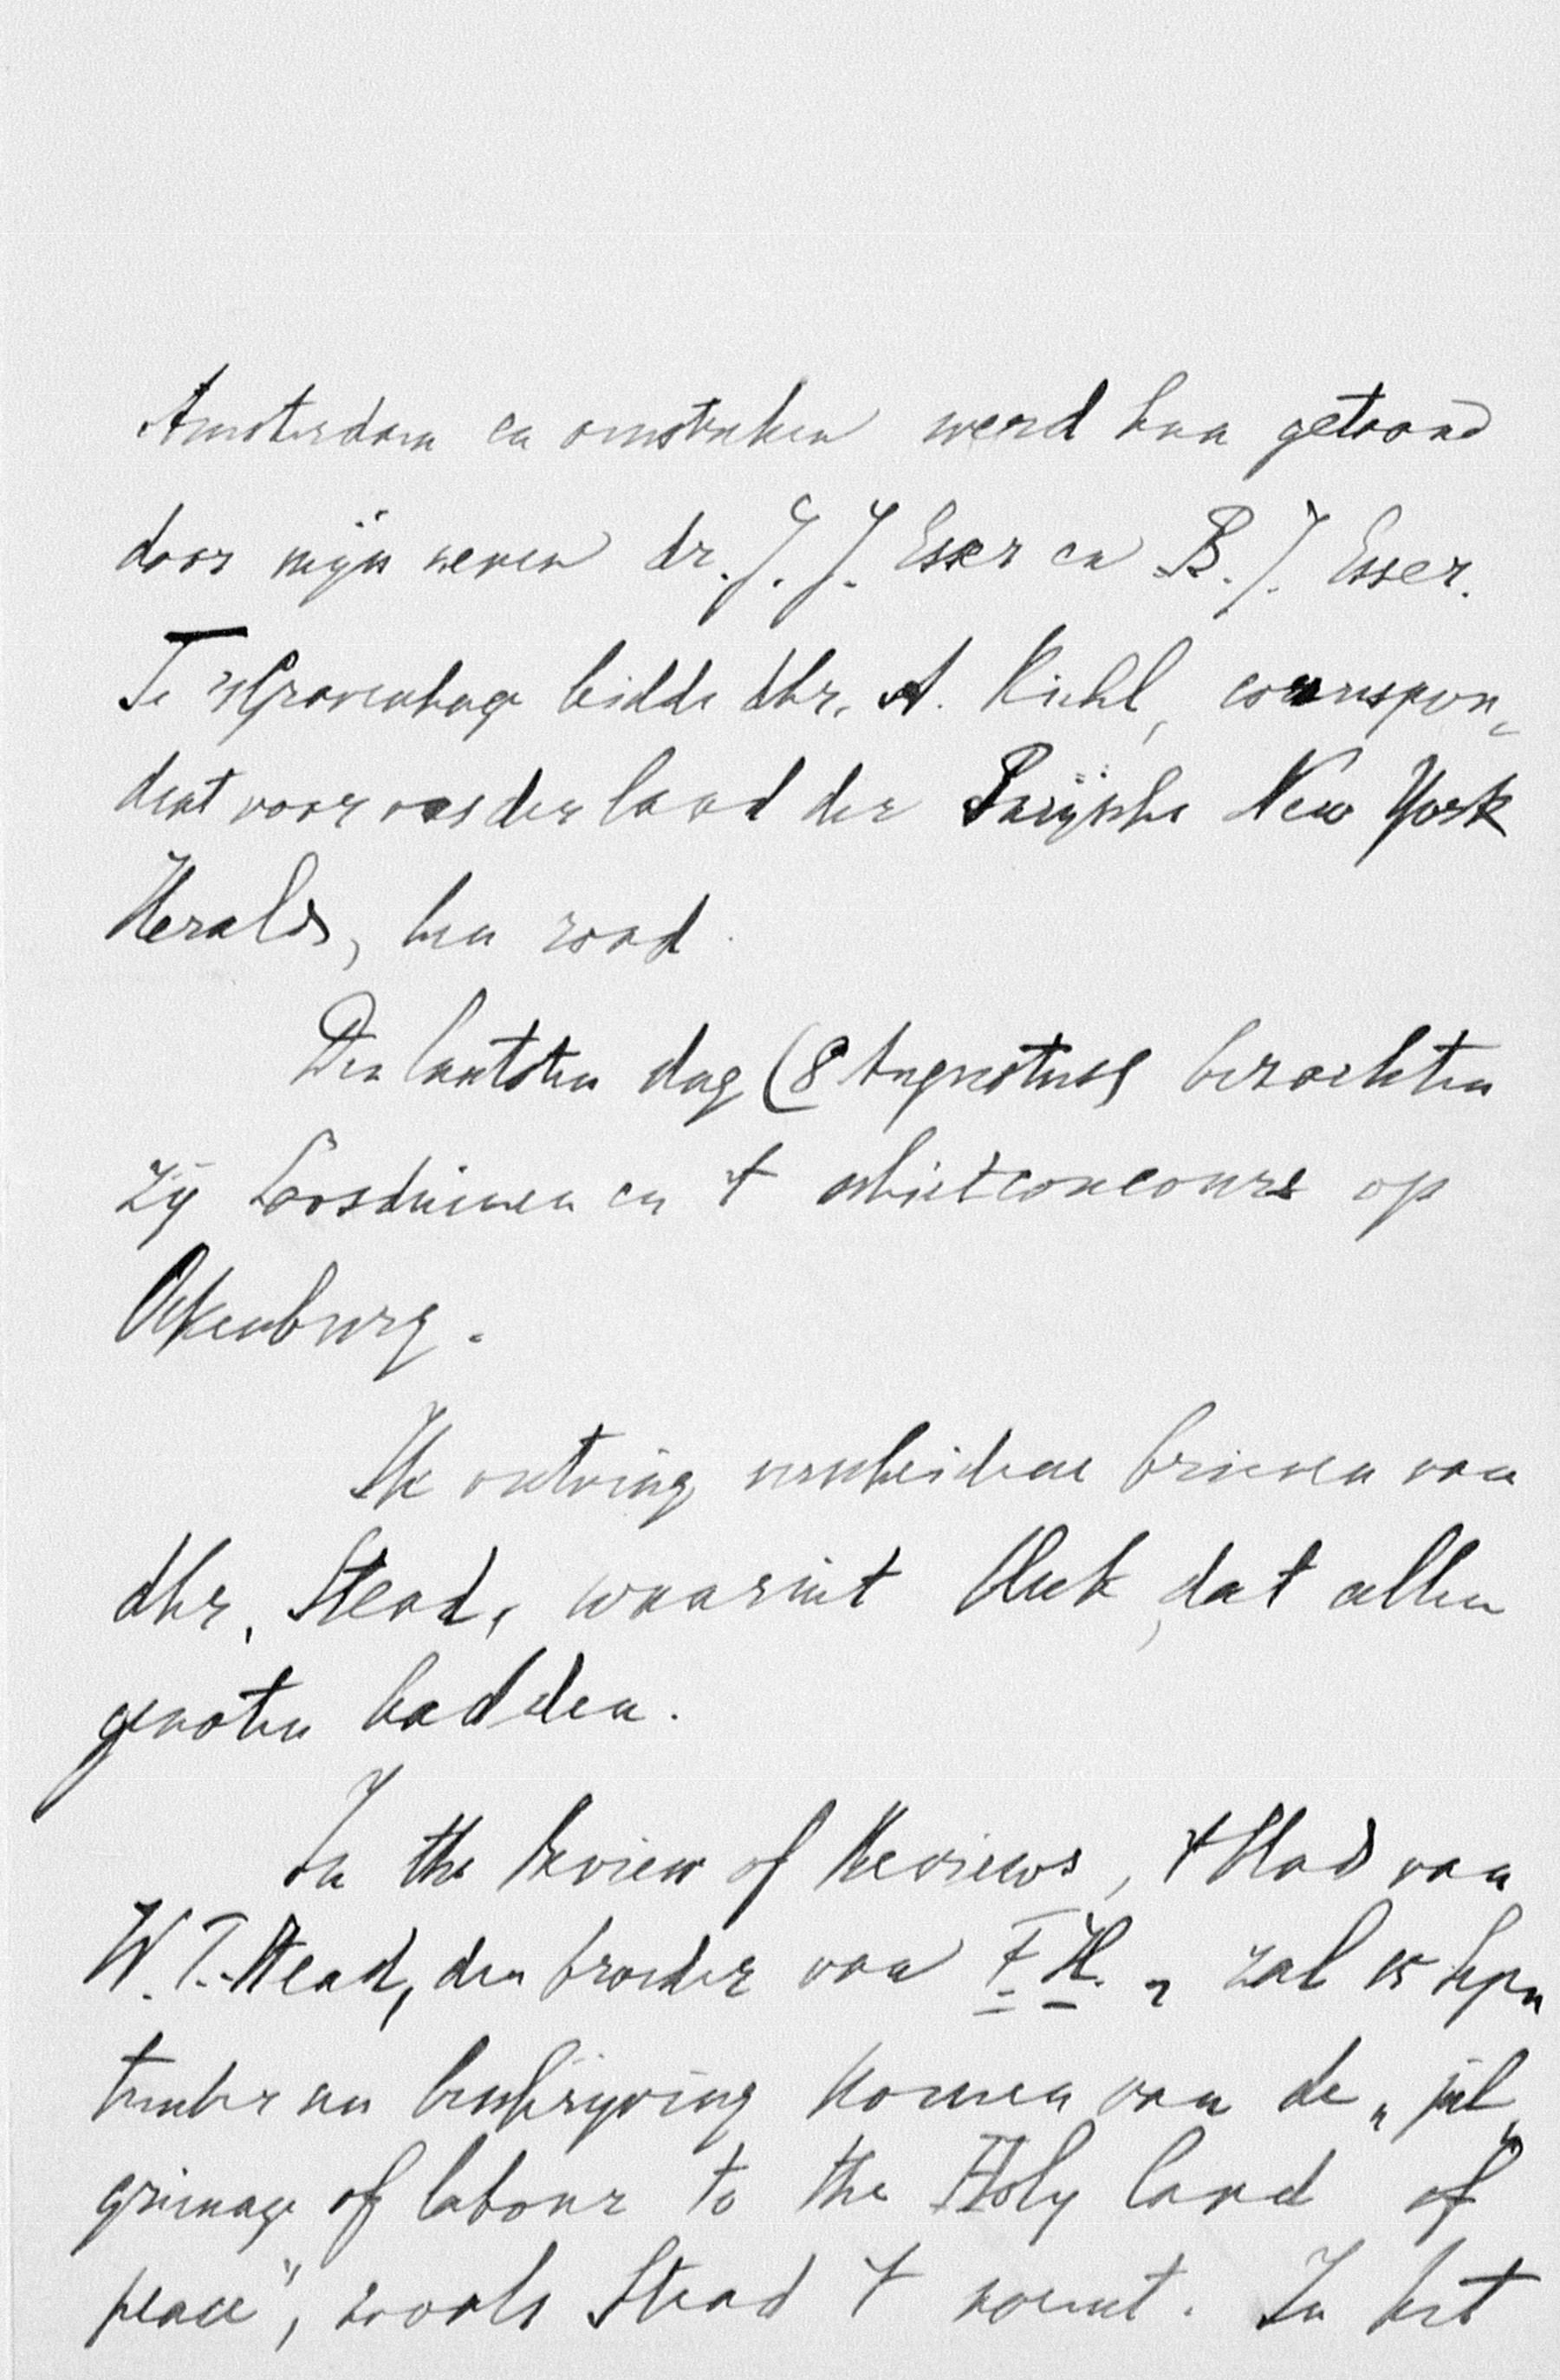 Amsterdam en omstreken werd hun getoond
door mijn neven dr. J. J. Esser en B. J. Esser.
Te 's Gravenhage leidde dhr. A. Kiehl, correspon„
dent voor ons der land der Parijsche New York
Herald, hen rond.
Den laatsten dag (8 Augustus) bezochten
zij Loosduinen en 't schietconcours op
Ockenburg.
Ik ontving verscheidene brieven van
dhr. Stead, waaruit bleek, dat allen
genoten hadden.
In the Review of Reviews, 't blad van
W. T. Stead, den broeder van F. H., zal 15 Sep„
tember een beschrijving komen van de „pil„
grimage of labour to the Holy land of
peace", zooals Stead 't noemt. In het